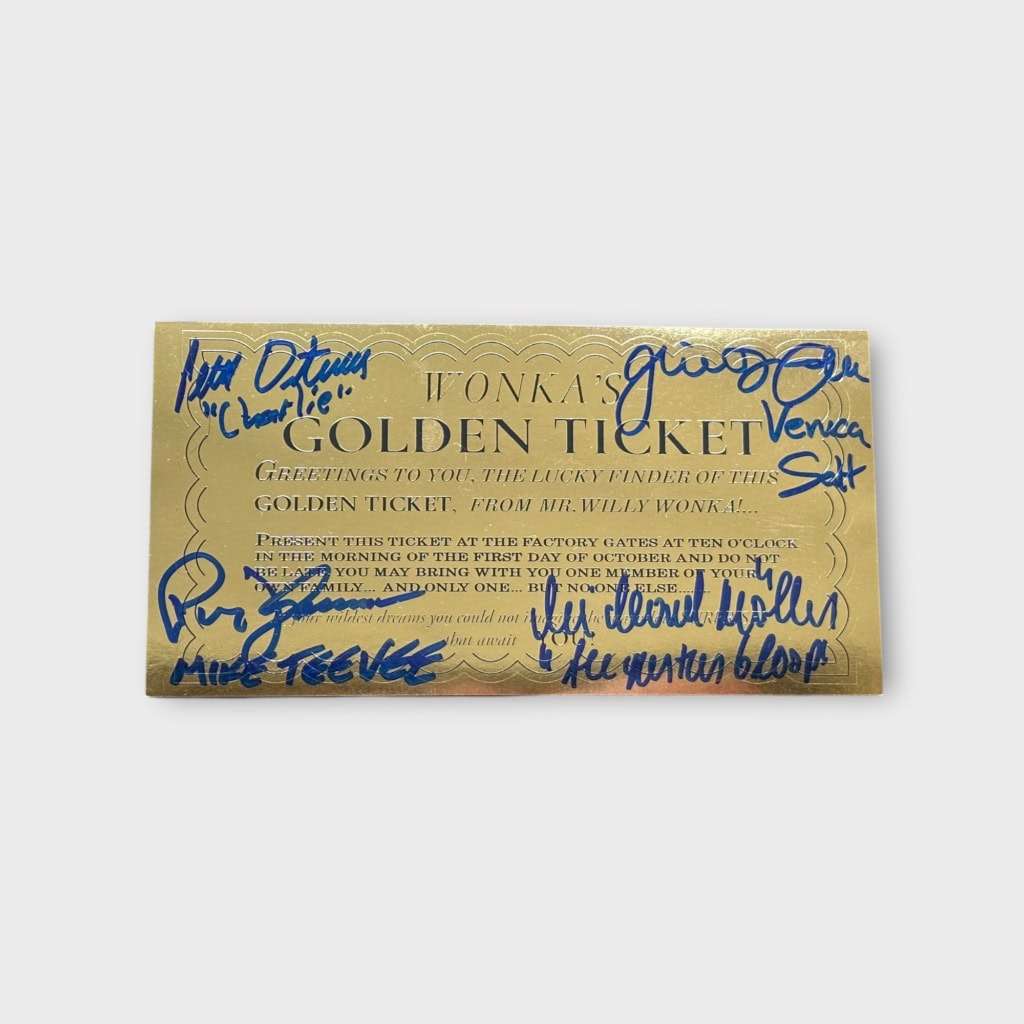 Peter Ostrum
"Charlie"
WONKA'S
GOLDEN TICKET
GREETINGS TO YOU, THE LUCKY FINDER OF THIS
GOLDEN TICKET, FROM MR. WILLY WONKA!...
PRESENT THIS TICKET AT THE FACTORY GATES AT TEN O'CLOCK
IN THE MORNING OF THE FIRST DAY OF OCTOBER AND DO NOT
BE LATE YOU MAY BRING WITH YOU ONE MEMBER OF YOUR
OWN FAMILY... AND ONLY ONE... BUT NO ONE ELSE......
your wildest dreams you could not
that await YOU
Julie Dawn Cole
Veruca
Salt
MIKE TEEVEE
Michael Böllner
"Augustus Gloop"